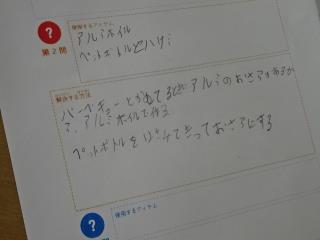 ?
第2問
使用するアイテム
アルミホイル
ペットボトルとハサミ
解決する方法
バーベキューとかでてるときにアルミのおさらがあるか
?、アルミホイルで作る
ペットボトルをはさみで きっておさらにする
?
使用するアイテム